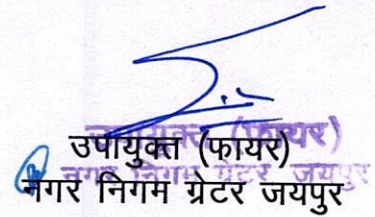 उपायुक्त (फायर)
नगर निगम ग्रेटर जयपुर
उपायुक्त (फायर)
नगर निगम ग्रेटर जयपुर